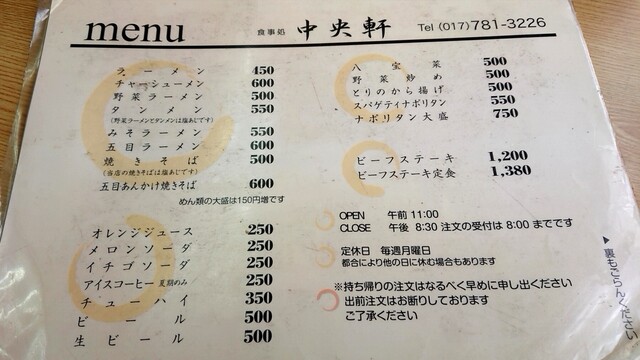 menu 食事処 中央軒 Tel (017)781-3226
ラーメン 450
チャーシューメン 600
野菜ラーメン 500
タンメン 550
(野菜ラーメンとタンメンは塩あじです)
みそラーメン 550
五目ラーメン 600
焼きそば 500
(当店の焼きそばは塩あじです)
五目あんかけ焼きそば 600
めん類の大盛は150円増です
オレンジジュース 250
メロンソーダ 250
イチゴソーダ 250
アイスコーヒー 夏期のみ 250
チューハイ 350
ビール 500
生ビール 500
八宝菜 500
野菜炒め 500
とりのから揚げ 500
スパゲティナポリタン 550
ナポリタン大盛 750
ビーフステーキ 1,200
ビーフステーキ定食 1,380
OPEN 午前 11:00
CLOSE 午後 8:30 注文の受付は 8:00 までです
定休日 毎週月曜日
都合により他の日に休む場合もあります
※持ち帰りの注文はなるべく早めに申し出ください
出前注文はお断りしております
ご了承ください
▶裏もごらんください